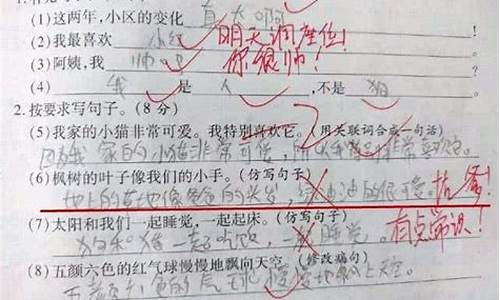 (1)这两年,小区的变化 真大啊
(2)我最喜欢 小红 明天调座位!
(3)阿姨,我 帅吗 你很帅!
(4) 我 是 人 ,不是 狗
2.按要求写句子。(8 分)
(5)我家的小猫非常可爱。我特别喜欢它。(用关联词合成一句话)
因为我家的小猫非常可爱,所以我非常喜欢它。
(6)枫树的叶子像我们的小手。(仿写句子)
地上的草地像爸爸的头发,绿油油的很可爱。
(7)太阳和我们一起睡觉,一起起床。(仿写句子)
一起吃饭,一起睡觉。 有点常识!
(8)五颜六色的红气球慢慢地飘向天空。(修改病句)
五颜六色的气球慢慢地飘上天空。